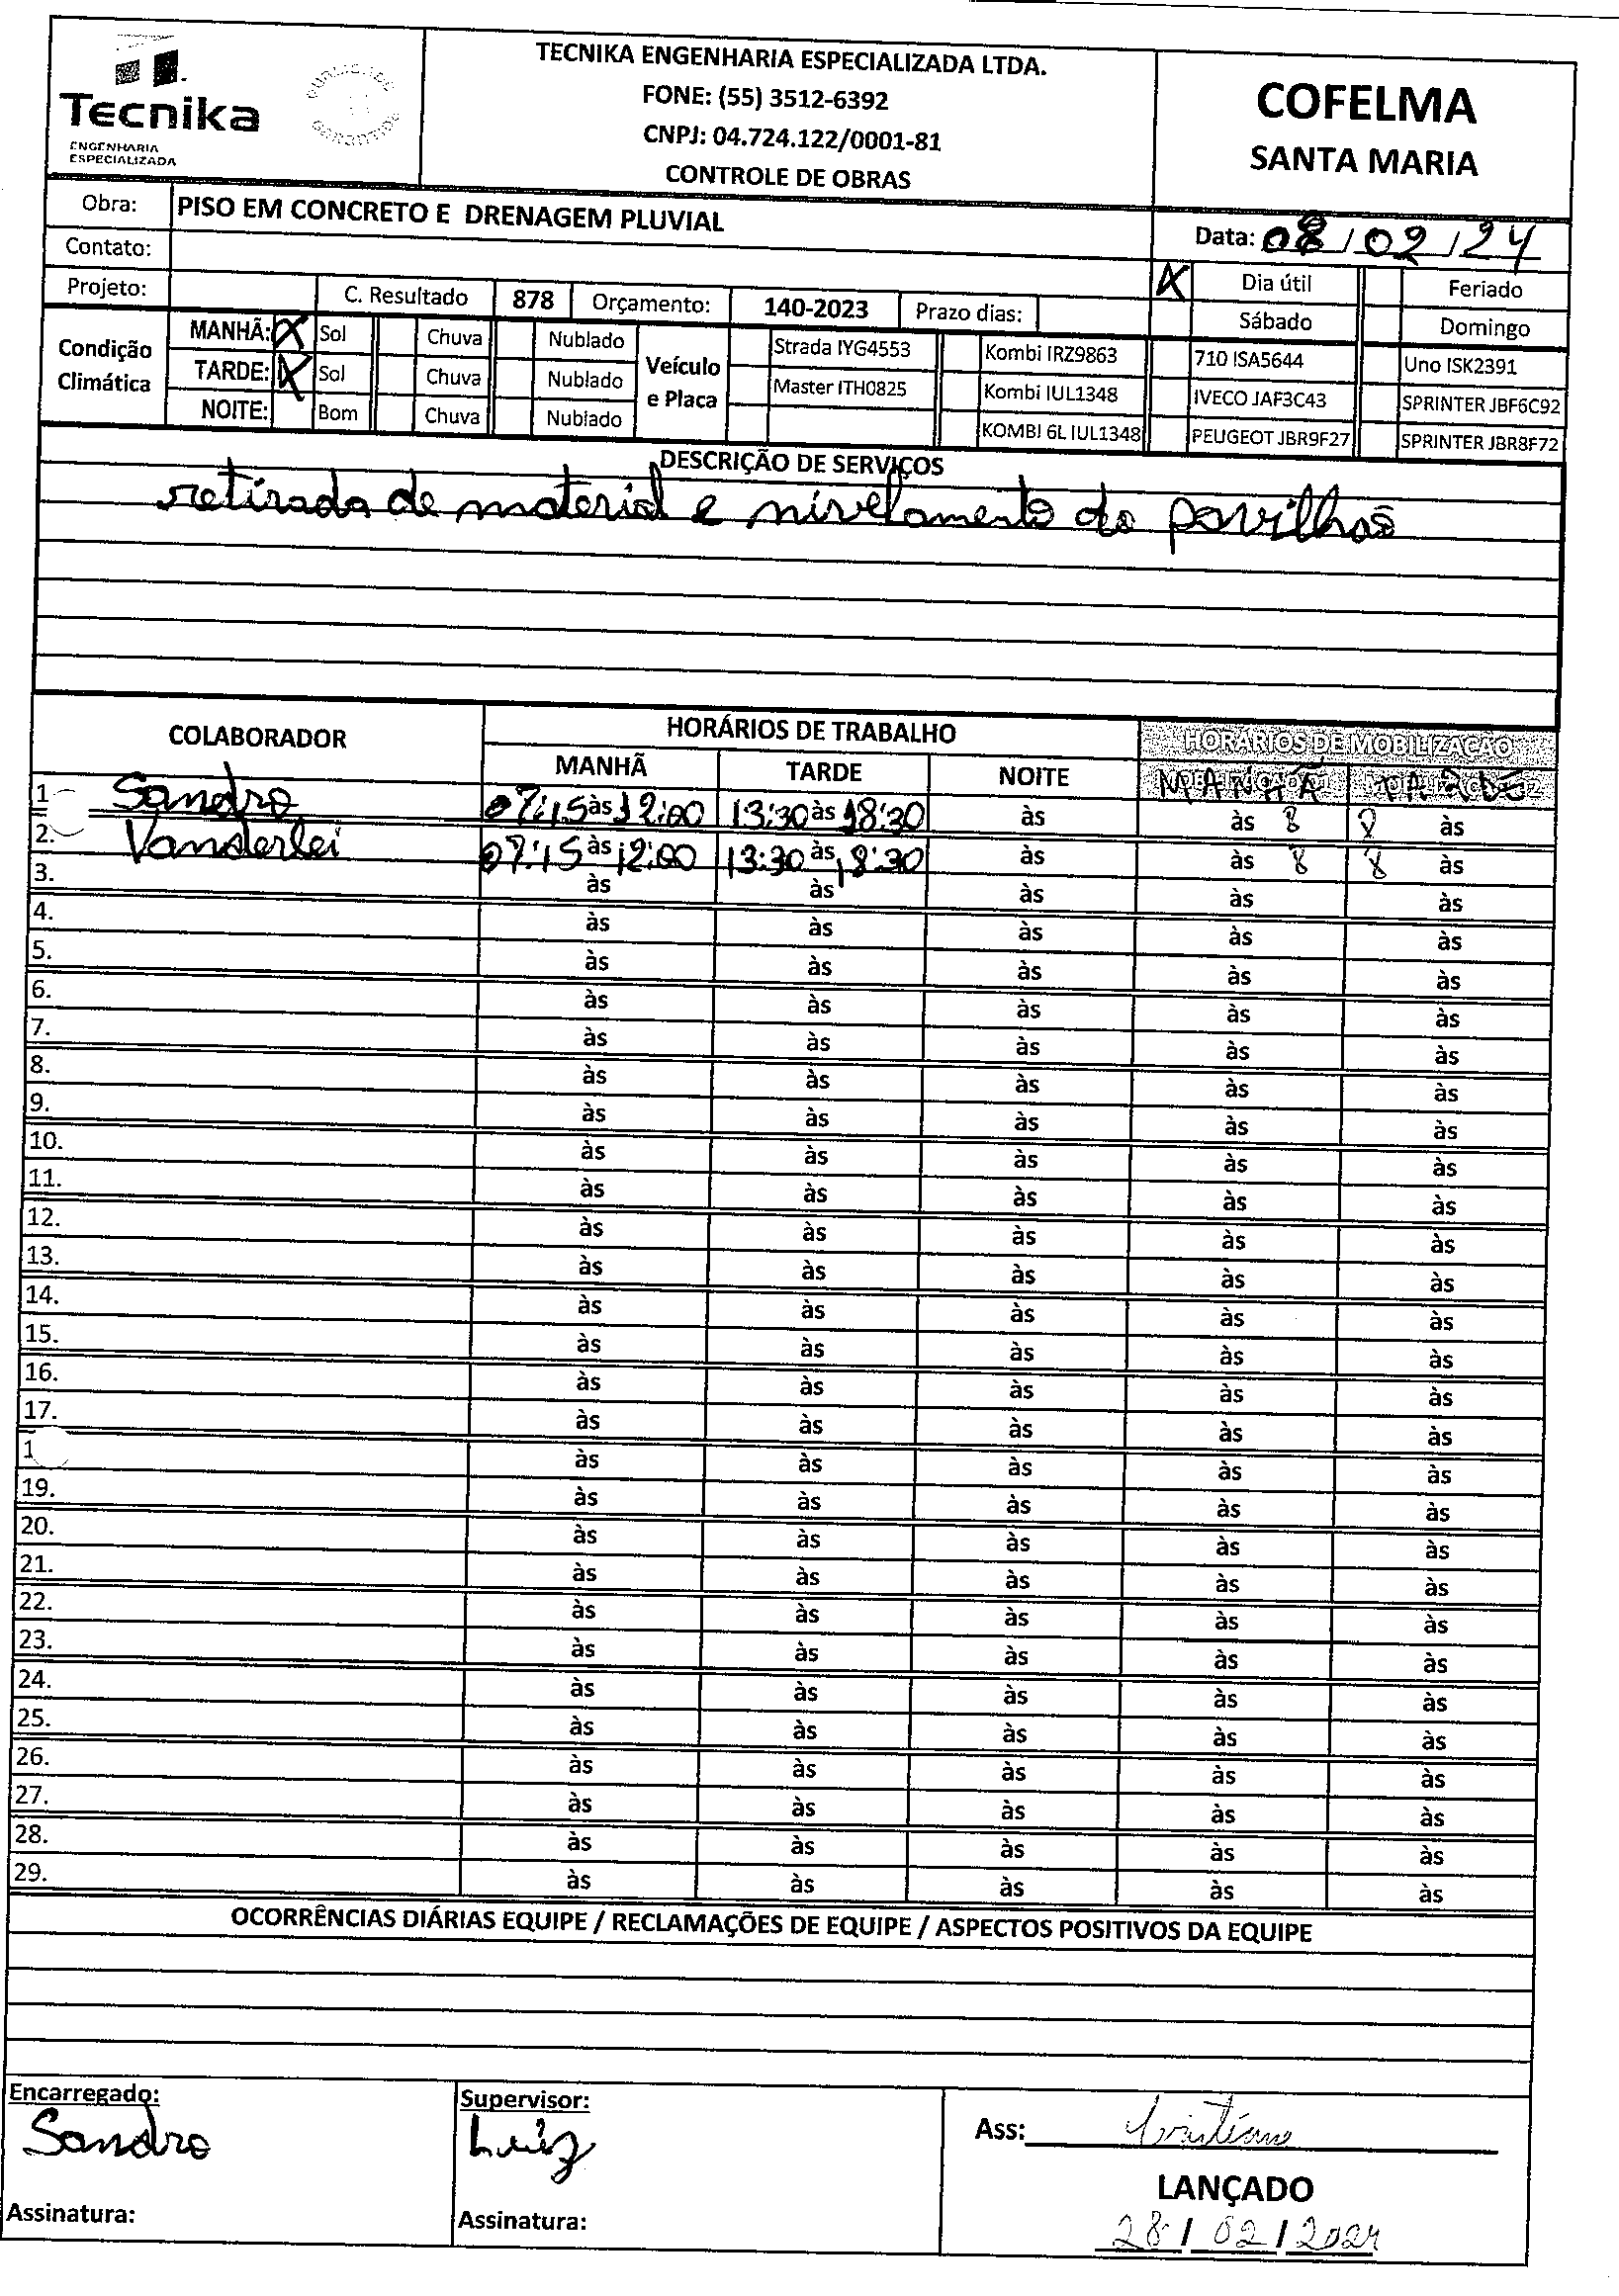 Tecnika
ENGENHARIA
ESPECIALIZADA
TECNIKA ENGENHARIA ESPECIALIZADA LTDA.
FONE: (55) 3512-6392
CNPJ: 04.724.122/0001-81
CONTROLE DE OBRAS
COFELMA
SANTA MARIA
Obra: PISO EM CONCRETO E DRENAGEM PLUVIAL
Data: 08/02/24
Contato:
X Dia útil Feriado
Projeto: C. Resultado 878 Orçamento: 140-2023 Prazo dias:
Sábado Domingo
Condição Climática
MANHÃ: X Sol Chuva Nublado
TARDE: X Sol Chuva Nublado
NOITE: Bom Chuva Nublado
Veículo e Placa
Strada IYG4553 Kombi IRZ9863 710 ISA5644 Uno ISK2391
Master ITH0825 Kombi IUL1348 IVECO JAF3C43 SPRINTER JBF6C92
KOMBI 6L IUL1348 PEUGEOT JBR9F27 SPRINTER JBR8F72
DESCRIÇÃO DE SERVIÇOS
retirada de material e nivelamento do pavilhão
COLABORADOR HORÁRIOS DE TRABALHO HORÁRIOS DE MOBILIZAÇÃO
MANHÃ TARDE NOITE MANHÃ TARDE
1 Sandro 07:15 às 12:00 13:30 às 18:30 às às 8 8 às
2. Vanderlei 07:15 às 12:00 13:30 às 18:30 às às 8 8 às
3. às às às às às
4. às às às às às
5. às às às às às
6. às às às às às
7. às às às às às
8. às às às às às
9. às às às às às
10. às às às às às
11. às às às às às
12. às às às às às
13. às às às às às
14. às às às às às
15. às às às às às
16. às às às às às
17. às às às às às
1 às às às às às
19. às às às às às
20. às às às às às
21. às às às às às
22. às às às às às
23. às às às às às
24. às às às às às
25. às às às às às
26. às às às às às
27. às às às às às
28. às às às às às
29. às às às às às
OCORRÊNCIAS DIÁRIAS EQUIPE / RECLAMAÇÕES DE EQUIPE / ASPECTOS POSITIVOS DA EQUIPE
Encarregado:
Sandro
Assinatura:
Supervisor:
Luiz
Assinatura:
Ass: Cristiano
LANÇADO
28/02/2024